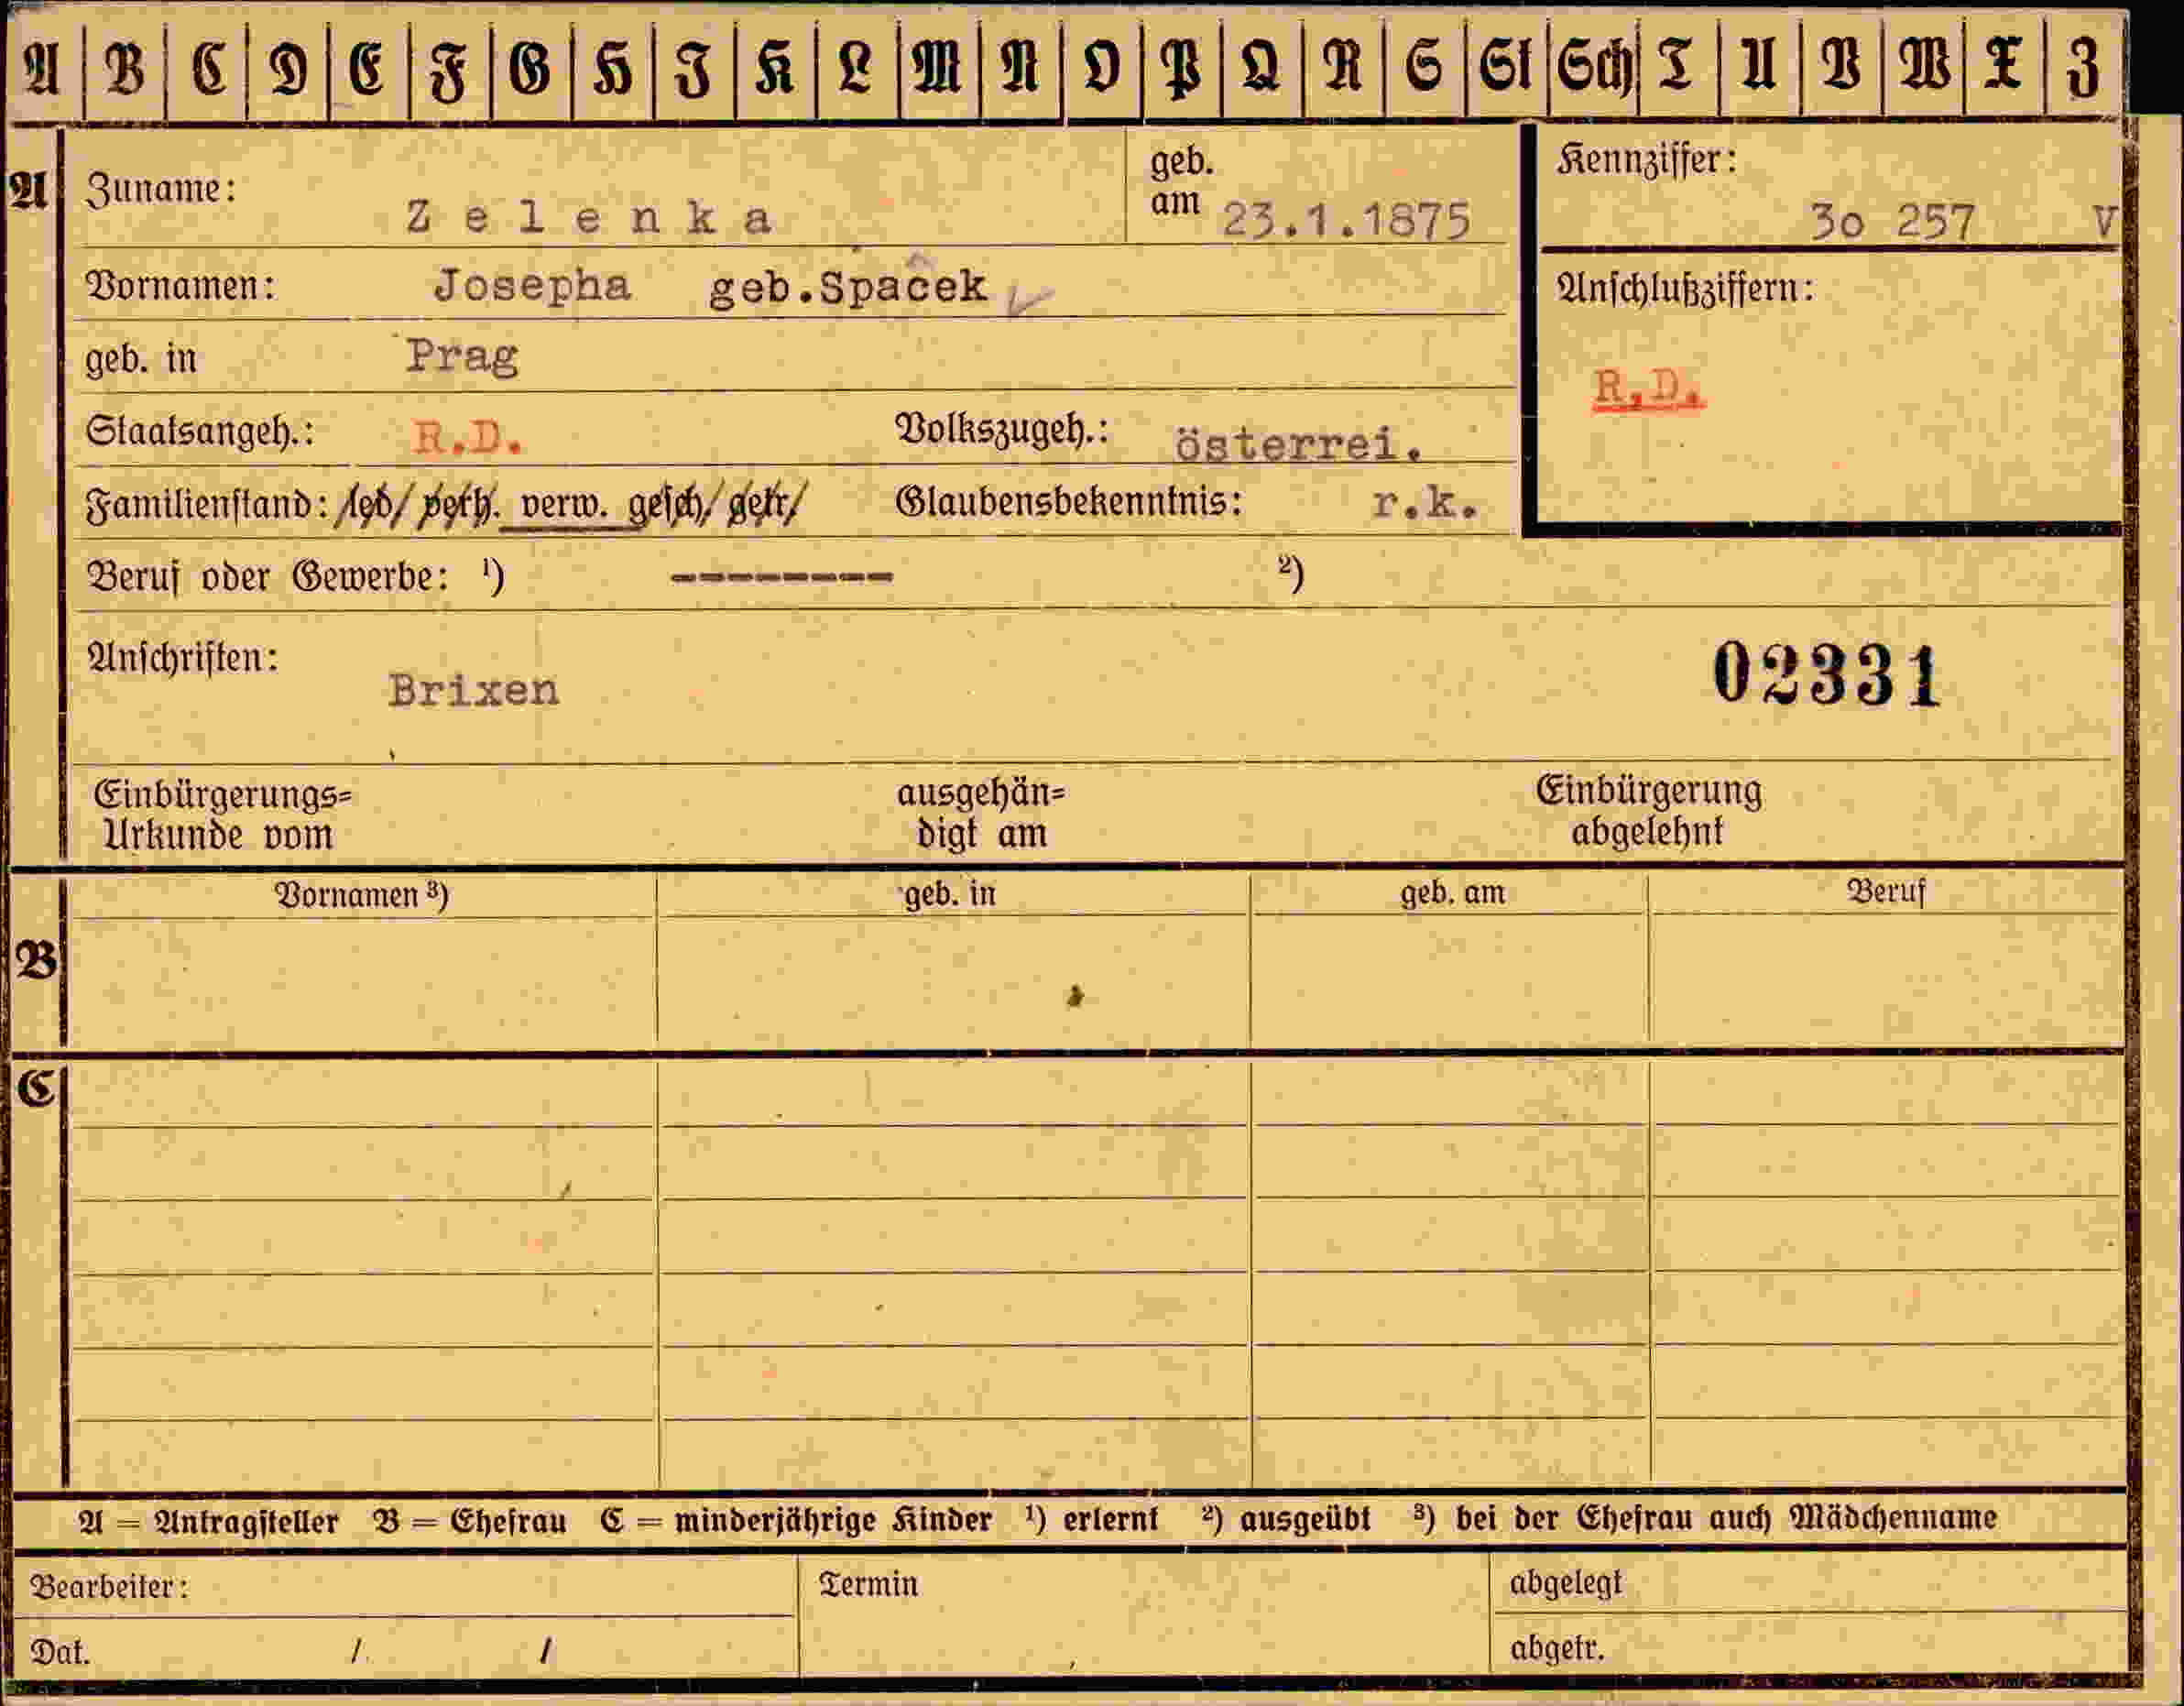 A B C D E F G H I K L M N O P Q R S St Sch T U V W X Z
A
Zuname: Zelenka
geb. am 23.1.1875
Kennziffer: 3o 257 V
Vornamen: Josepha geb.Spaček
Anschlußziffern:
R.D.
geb. in Prag
Staatsangeh.: R.D. Volkszugeh.: österrei.
Familienstand: led. verh. verw. gesch. getr. Glaubensbekenntnis: r.k.
Beruf oder Gewerbe: ¹) -------- ²)
Anschriften: Brixen
02331
Einbürgerungs=
Urkunde vom
ausgehän=
digt am
Einbürgerung
abgelehnt
B
Vornamen ³) geb. in geb. am Beruf
C
A = Antragsteller B = Ehefrau C = minderjährige Kinder ¹) erlernt ²) ausgeübt ³) bei der Ehefrau auch Mädchenname
Bearbeiter: Termin abgelegt
Dat. / / abgetr.